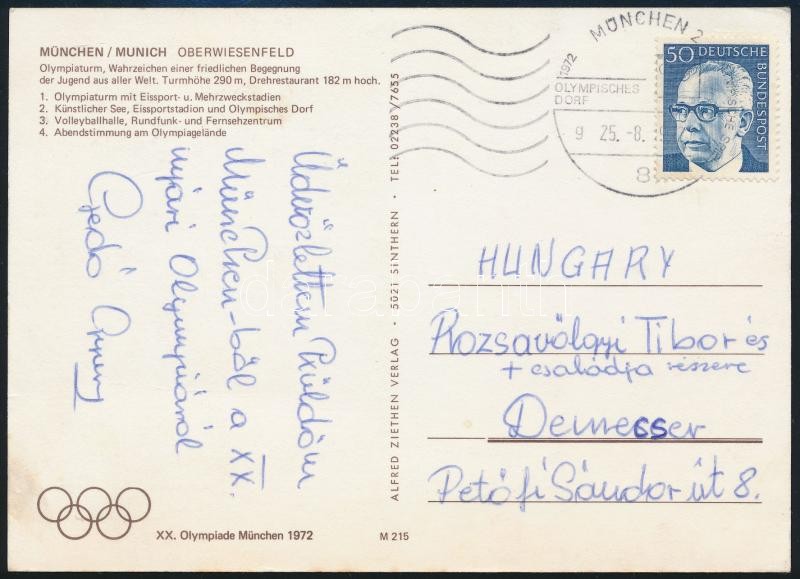 MÜNCHEN / MUNICH OBERWIESENFELD
Olympiaturm, Wahrzeichen einer friedlichen Begegnung
der Jugend aus aller Welt. Turmhöhe 290 m, Drehrestaurant 182 m hoch.
1. Olympiaturm mit Eissport- u. Mehrzweckstadien
2. Künstlicher See, Eissportstadion und Olympisches Dorf
3. Volleyballhalle, Rundfunk- und Fernsehzentrum
4. Abendstimmung am Olympiagelände
Üdvözletem küldöm
München-ből a XX.
nyári Olympiáról
Gedó
XX. Olympiade München 1972
M 215
ALFRED ZIETHEN VERLAG · 5021 SINTHERN · TEL. 02238 / 7655
MÜNCHEN 2
1972
OLYMPISCHES
DORF
g 25.-8.
8
50 DEUTSCHE
BUNDESPOST
HUNGARY
Rozsavölgyi Tibor és
+ családja részere
Demecser
Petőfi Sándor út 8.
darabanth